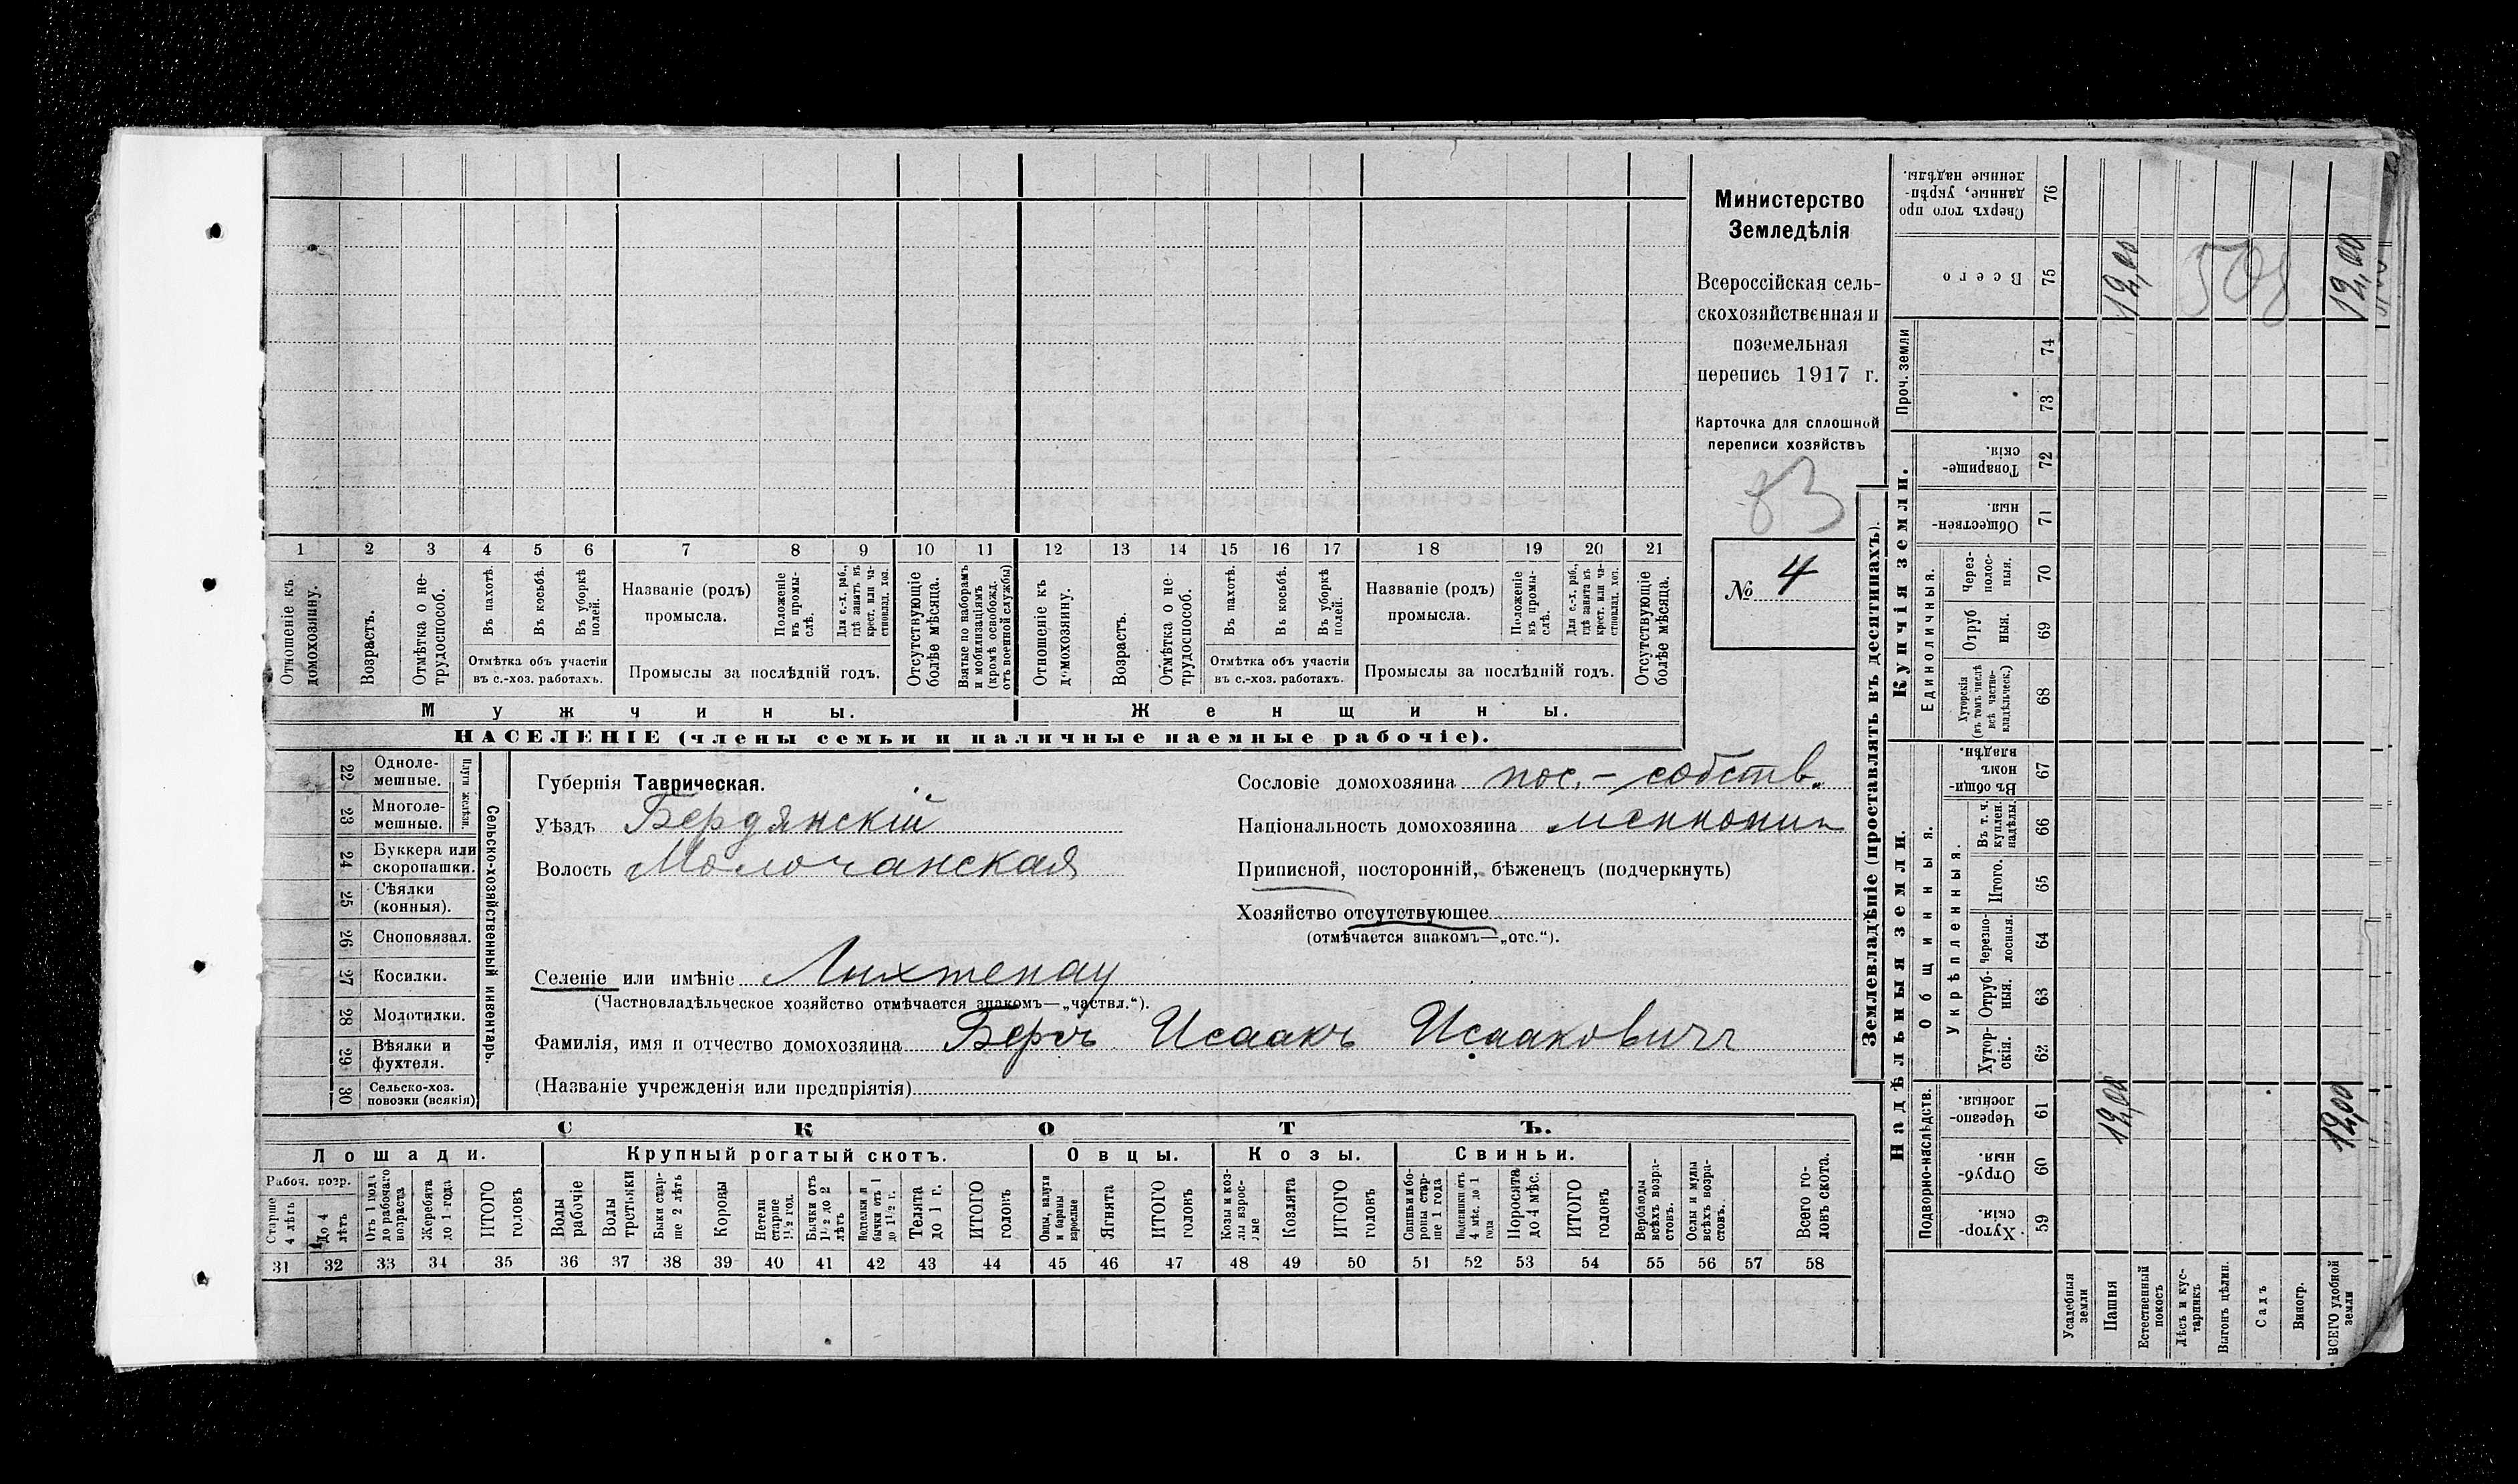 Министерство
Земледѣлія
Всероссійская сель-
скохозяйственная и
поземельная
перепись 1917 г.
Карточка для сплошной
переписи хозяйствъ
83
№ 4
1 2 3 4 5 6 7 8 9 10 11 12 13 14 15 16 17 18 19 20 21
Отношеніе къ домохозяину.
Возрастъ.
Отмѣтка о не-трудоспособ.
Въ пахотѣ.
Въ косьбѣ.
Въ уборкѣ полей.
Отмѣтка объ участіи
въ с.-хоз. работахъ.
Названіе (родъ)
промысла.
Положеніе въ промы-слѣ.
Для с.-х. раб., гдѣ занятъ въ крест. или ча-стновлад. хоз.
Промыслы за послѣдній годъ.
Отсутствующіе болѣе мѣсяца.
Взятые по наборамъ и мобилизаціямъ (кромѣ освобожд. отъ военной службы)
Отношеніе къ домохозяину.
Возрастъ.
Отмѣтка о не-трудоспособ.
Въ пахотѣ.
Въ косьбѣ.
Въ уборкѣ полей.
Отмѣтка объ участіи
въ с.-хоз. работахъ.
Названіе (родъ)
промысла.
Положеніе въ промы-слѣ.
Для с.-х. раб., гдѣ занята въ крест. или ча-стновлад. хоз.
Промыслы за послѣдній годъ.
Отсутствующіе болѣе мѣсяца.
Мужчины.
Женщины.
НАСЕЛЕНІЕ (члены семьи и наличные наемные рабочіе).
22 Одноле-мешные.
23 Многоле-мешные.
Плуги желѣзн.
24 Буккера или скоропашки.
25 Сѣялки (конныя).
26 Сноповязал.
27 Косилки.
28 Молотилки.
29 Вѣялки и фухтеля.
30 Сельско-хоз. повозки (всякія)
Сельско-хозяйственный инвентарь.
Губернія Таврическая.
Уѣздъ Бердянскій
Волость Молочанская
Сословіе домохозяина пос.-собств.
Національность домохозяина меннонит
Приписной, посторонній, бѣженецъ (подчеркнуть)
Хозяйство отсутствующее
(отмѣчается знакомъ—„отс.“).
Селеніе или имѣніе Лихтенау
(Частновладѣльческое хозяйство отмѣчается знакомъ—„частвл.“).
Фамилія, имя и отчество домохозяина Бергъ Исаакъ Исааковичъ
(Названіе учрежденія или предпріятія)
СКОТЪ.
Лошади.
Крупный рогатый скотъ.
Овцы.
Козы.
Свиньи.
Рабоч. возр.
Старше 4 лѣтъ
До 4 лѣтъ
Отъ 1 года до рабочаго возраста
Жеребята до 1 года
ИТОГО головъ
Волы рабочіе
Волы третьяки
Быки стар-ше 2 лѣтъ
Коровы
Нетели старше 1½ год.
Бычки отъ 1½ до 2 лѣтъ
Подтелки и бычки отъ 1 до 1½ г.
Телята до 1 г.
ИТОГО головъ
Овцы, валухи и бараны взрослые
Ягнята
ИТОГО головъ
Козы и коз-лы взрос-лые
Козлята
ИТОГО головъ
Свиньи бо-ровы стар-ше 1 года
Подсвинки отъ 4 мѣс. до 1 года
Поросята до 4 мѣс.
ИТОГО головъ
Верблюды всѣхъ возра-стовъ.
Ослы и мулы всѣхъ возра-стовъ.
Всего го-ловъ скота.
31 32 33 34 35 36 37 38 39 40 41 42 43 44 45 46 47 48 49 50 51 52 53 54 55 56 57 58
Землевладѣніе (проставлять въ десятинахъ).
Надѣльныя земли.
Купчія земли.
Проч. земли
Сверхъ того про данные, укрѣп-ленные надѣлы. 76
Всего 75 12,00 12,00
508
74
73
Товарище-скія. 72
Обществен-ныя. 71
Единоличныя.
Через-полос-ныя. 70
Отруб ныя. 69
Хуторскія (въ томъ числѣ всѣ частно-владѣльческ.) 68
Общинныя.
Въ общи-номъ владѣн. 67
Укрѣпленныя.
Въ т. ч. куплен. надѣлы. 66
Итого. 65
Черезпо-лосныя. 64
Отруб-ныя. 63
Хутор-скія. 62
Подворно-наслѣдств.
Черезпо-лосныя. 61 12,00 12,00
Отруб-ныя. 60
Хутор-скія. 59
Усадебныя земли
Пашня
Естественный покосъ
Лѣсъ и кус-тарникъ
Выгонъ цѣлин.
Садъ
Виногр.
ВСЕГО удобной земли